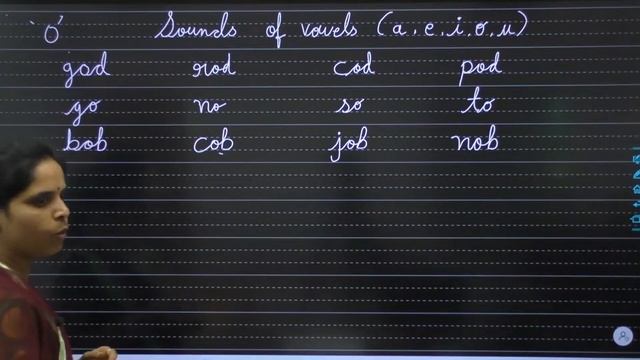 'O' Sounds of vowels (a, e, i, o, u)
god rod cod pod
go no so to
bob cob job nob